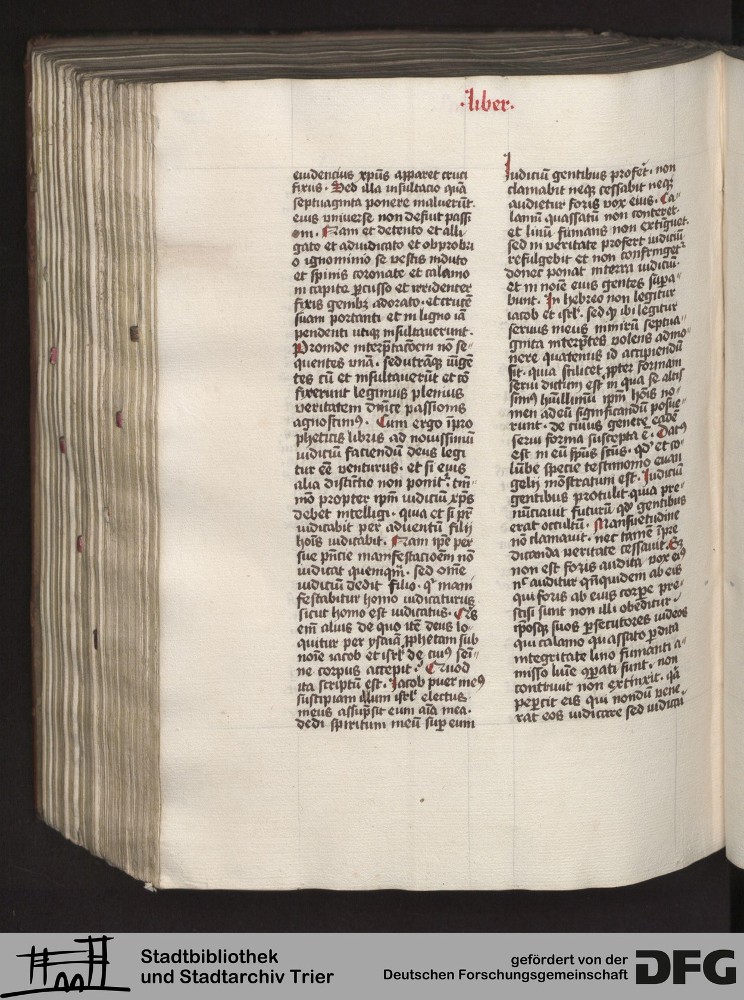 ·liber·
euidencius xp̄us apparet cruci
fixus · Sed illa insultacio quā
septuaginta ponere maluerūt·
eius vniuerse non defuit passi
oni · Nam et detento et alli
gato et adiudicato et obprobri
o ignominio se vestis induto
et spinis coronate et calamo
in capite ꝑcusso et irridenter
fixis genibꝫ adorato · et crucē
suam portanti et in ligno iā
pendenti utiqꝫ insultauerunt·
Proinde interp̄tatōem nō se⸗
quentes vnā · sed utrāqꝫ iūgē
tes cū et insultauerūt et cō
fixerint legimus plenius
veritatem dn̄ice passionis
agnoscimꝰ · Cum ergo ī pro
pheticis libris ad nouissimū
iudiciū faciendū deus legi
tur eē venturus · et si eius
alia distīctio non ponitᷣ tm̄⸗
mō propter ip̄m iudiciū xp̄s
debet intelligi · quia et si pr̄
iudicabit per aduentū filij
hoīs iudicabit · Nam ip̄e per
sue pn̄cie manifestacioēm nō
iudicat quemqm̄ · sed om̄e
iudiciū dedit filio · qͥ mani
festabitur homo iudicaturus
sicut homo est iudicatus · Qͥs
em̄ aliuis de quo itē deus lo⸗
quitur per ysaiā ꝓphetam sub
noīe iacob et isrl̓ de cuiꝰ sem̄⸗
ne corpus accepit · Quod
ita scriptū est · Jacob puer meꝰ
suscipiam illum isrl̓ electus
meus assūpsit eum aīa mea ·
dedi spiritum meū sup eum
Iudiciū gentibus profet̓ · non
clamabit neqꝫ cessabit neqꝫ
audietur foris vox eius · Ca⸗
lamū quassatū non conteret·
et linū fumans non extīguet·
sed in veritate profert iudiciū
refulgebit et non confringetᷣ
donec ponat in terra iudiciū·
et in noīe eius gentes supa⸗
bunt · In hebreo non legitur
iacob et isrl̓ · sed qꝫ ibi legitur
seruus meus nimirū septua⸗
ginta interp̄tes volens admo⸗
nere quatenus id accipiendū
sit · quia scilicet ꝓpter formam
serui dictum est in qua se altis
simꝰ hūilimū ip̄m hoīs no⸗
men ad eū significandū posue⸗
runt · de cuius genere eadē
serui forma suscepta ē · Datꝰ
est in eū sp̄us sc̄us · qd̓ et co⸗
lūbe specie testimonio euan
gelij mōstratum est · Iudiciū
gentibus protulit quia pre⸗
nūciauit futurū qd̓ gentibus
erat occultū · Mansuetudine
nō clamauit · nec tamē ī pre
dicanda veritate cessauit · Sꝫ
non est foris audita vox eiꝰ
nᶜ auditur qn̄quidem ab eis
qui foris ab eius corꝑe pre⸗
scisi sunt non illi obeditur ·
ip̄osqꝫ suos ꝑsecutores iudeos
qui calamo quassato ꝑdita
integritate lino fumanti a⸗
misso lum̄e ꝯꝑati sunt · non
contriuit non extinxit · qͣ
peꝑcit eis qui nondū vene⸗
rat eos iudicare sed iudicari
Stadtbibliothek
und Stadtarchiv Trier
gefördert von der
Deutschen Forschungsgemeinschaft
DFG